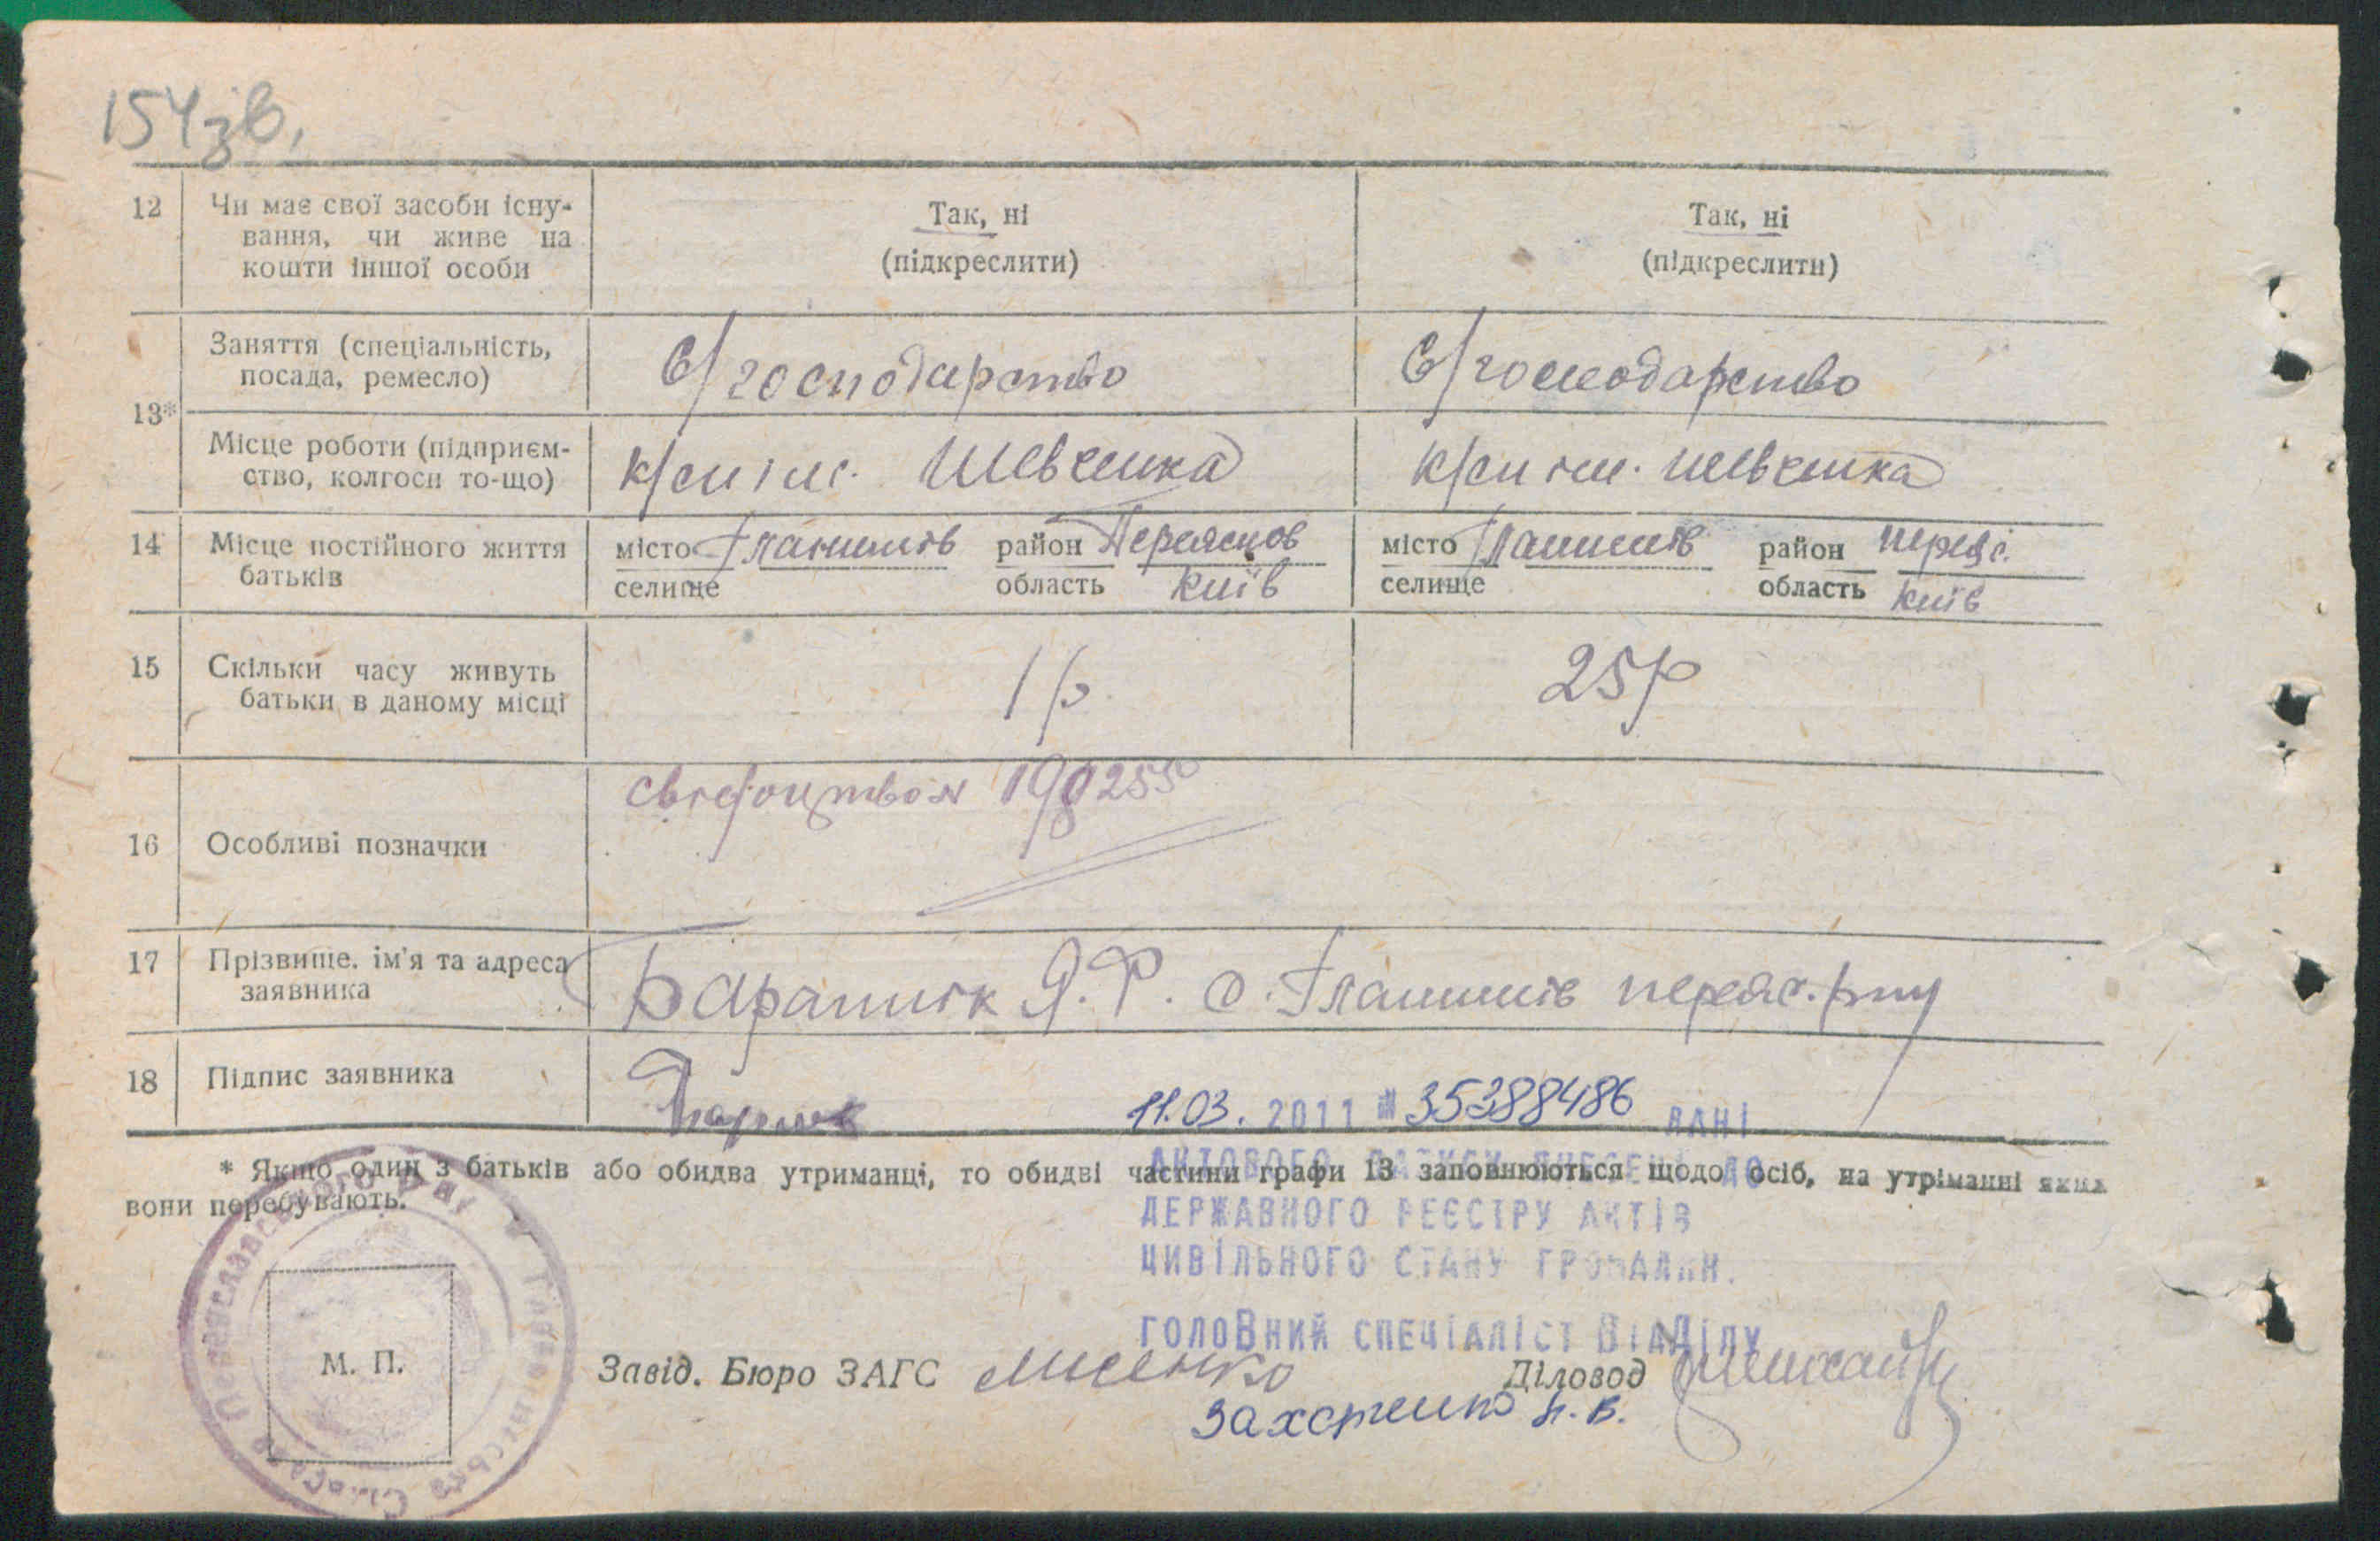 154зв.
12 Чи має свої засоби існу-
вання, чи живе на
кошти іншої особи
Так, ні
(підкреслити)
Так, ні
(підкреслити)
13*
Заняття (спеціальність,
посада, ремесло)
С/господарство
С/господарство
Місце роботи (підприєм-
ство, колгосп то-що)
к/сп ім. Шевченка
к/сп ім. Шевченка
14 Місце постійного життя
батьків
місто Гланишів район Переяслов
селище область Київ
місто Гланишів район переяс.
селище область Київ
15 Скільки часу живуть
батьки в даному місці
1 р
25 р
16 Особливі позначки
свідоцтво №
17 Прізвище, ім'я та адреса
заявника
Баранник Я. Ф. с. Гланишів переяс. р-ну
18 Підпис заявника
11.03. 2011 № 35388486 ДАНІ
* Якщо один з батьків або обидва утриманці, то обидві частини графи 13 заповнюються щодо осіб, на утріманні яких
вони перебувають.
АКТОВОГО ЗАПИСУ ВНЕСЕНІ ДО
ДЕРЖАВНОГО РЕЄСТРУ АКТІВ
ЦИВІЛЬНОГО СТАНУ ГРОМАДЯН.
ГОЛОВНИЙ СПЕЦІАЛІСТ ВІДДІЛУ
М. П.
Завід. Бюро ЗАГС Лисенко Діловод
Захарченко